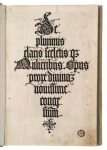 De
plurimis
claris sceletisqz
Mulieribus Opus
prope diuinuz
nouissime
conge
stum